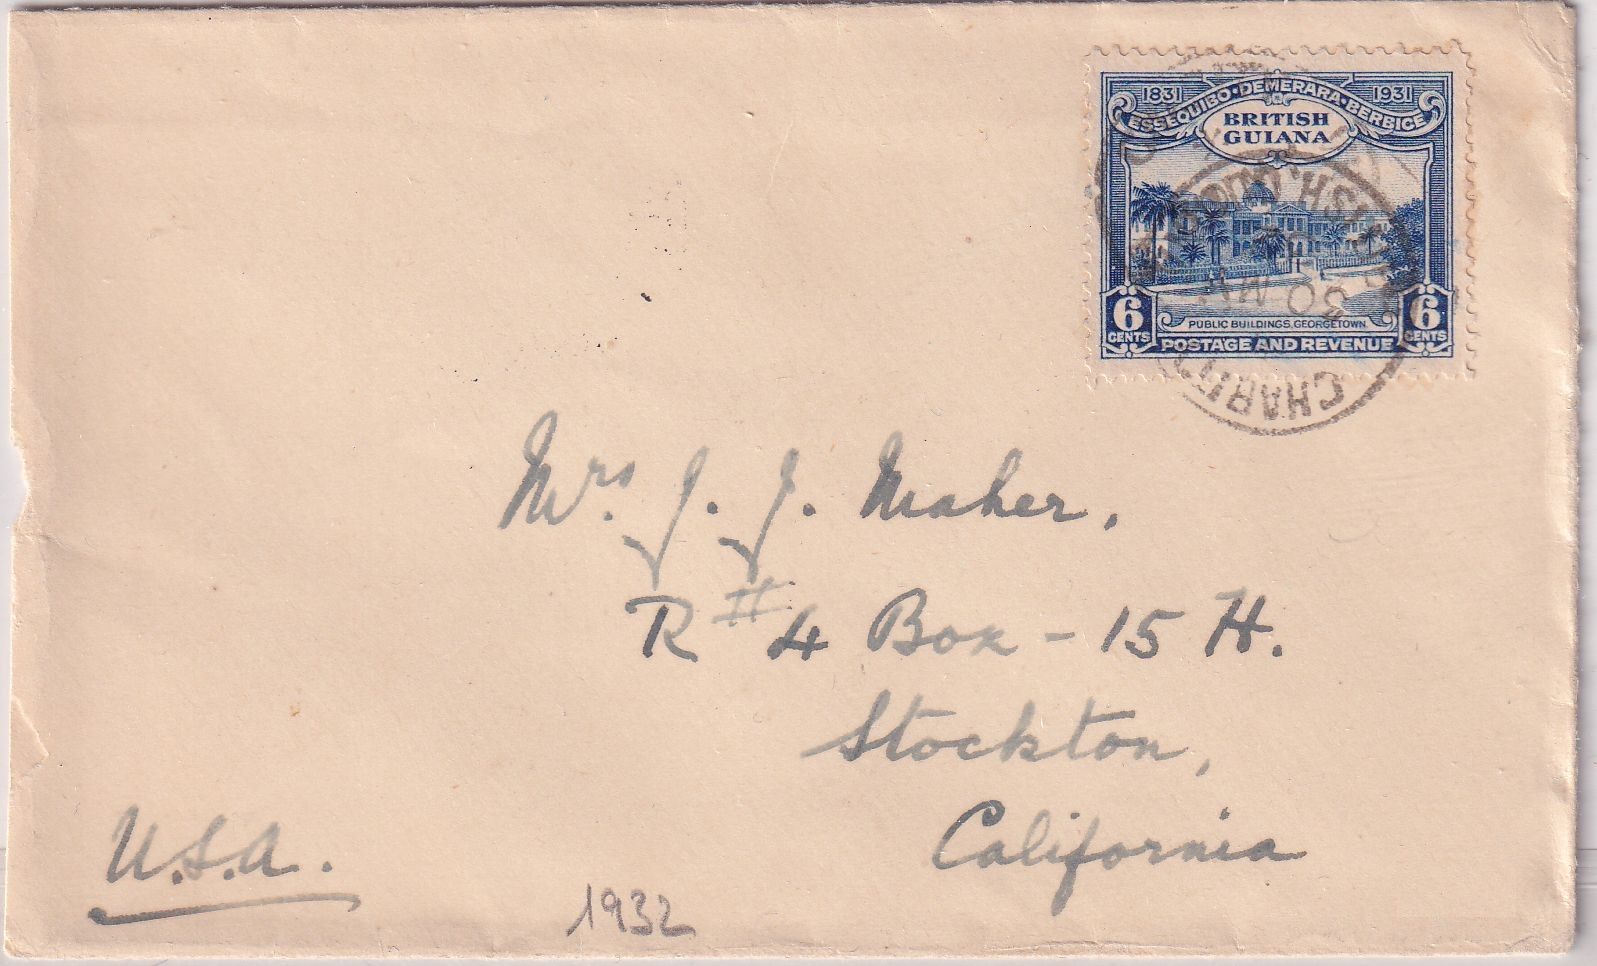 1831 1931
ESSEQUIBO·DEMERARA·BERBICE
BRITISH
GUIANA
30 MY
6 CENTS
6 CENTS
PUBLIC BUILDINGS, GEORGETOWN.
POSTAGE AND REVENUE
Mrs. J. J. Maher.
R # 4 Box - 15 H.
Stockton,
California
U.S.A.
1932